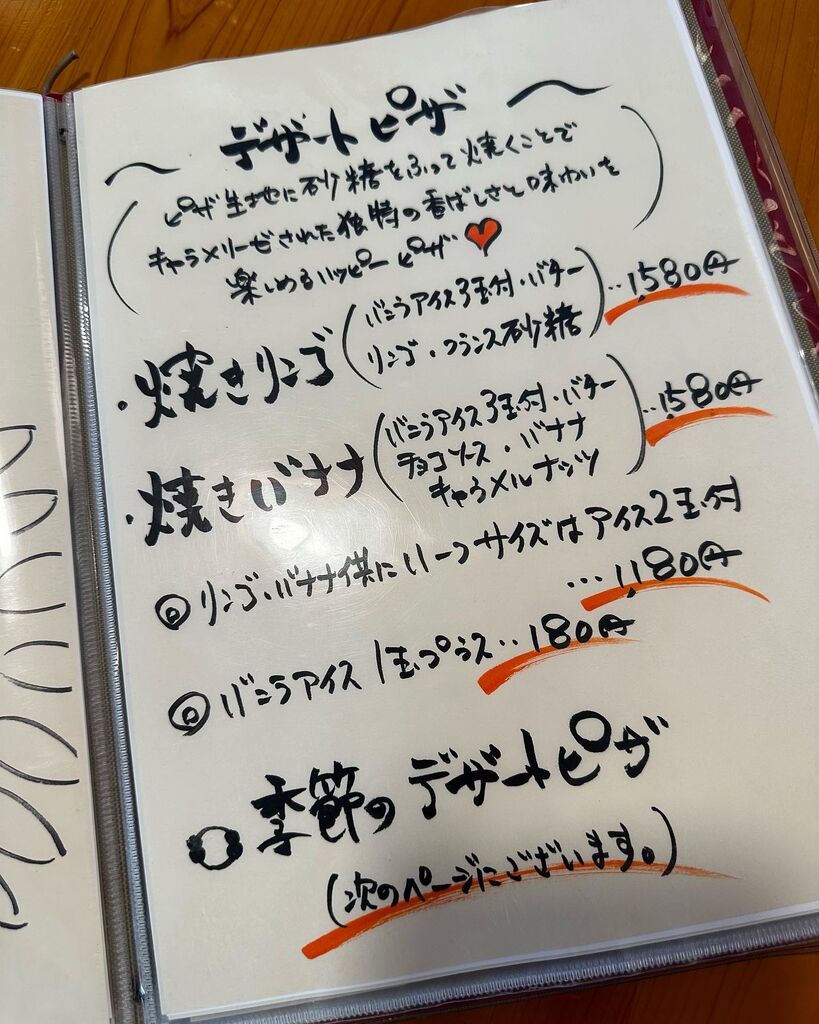 〜 デザートピザ 〜
(ピザ生地に砂糖をふって焼くことで
キャラメリーゼされた独特の香ばしさと味わいを
楽しめるハッピーピザ♥)
・焼きリンゴ(バニラアイス3玉付・バター
リンゴ・フランス砂糖)‥1,580円
・焼きバナナ(バニラアイス3玉付・バター
チョコソース・バナナ
キャラメルナッツ)‥1,580円
◎リンゴ、バナナ供にハーフサイズはアイス2玉付
…1,180円
◎バニラアイス1玉プラス‥180円
●季節のデザートピザ
(次のページにございます。)